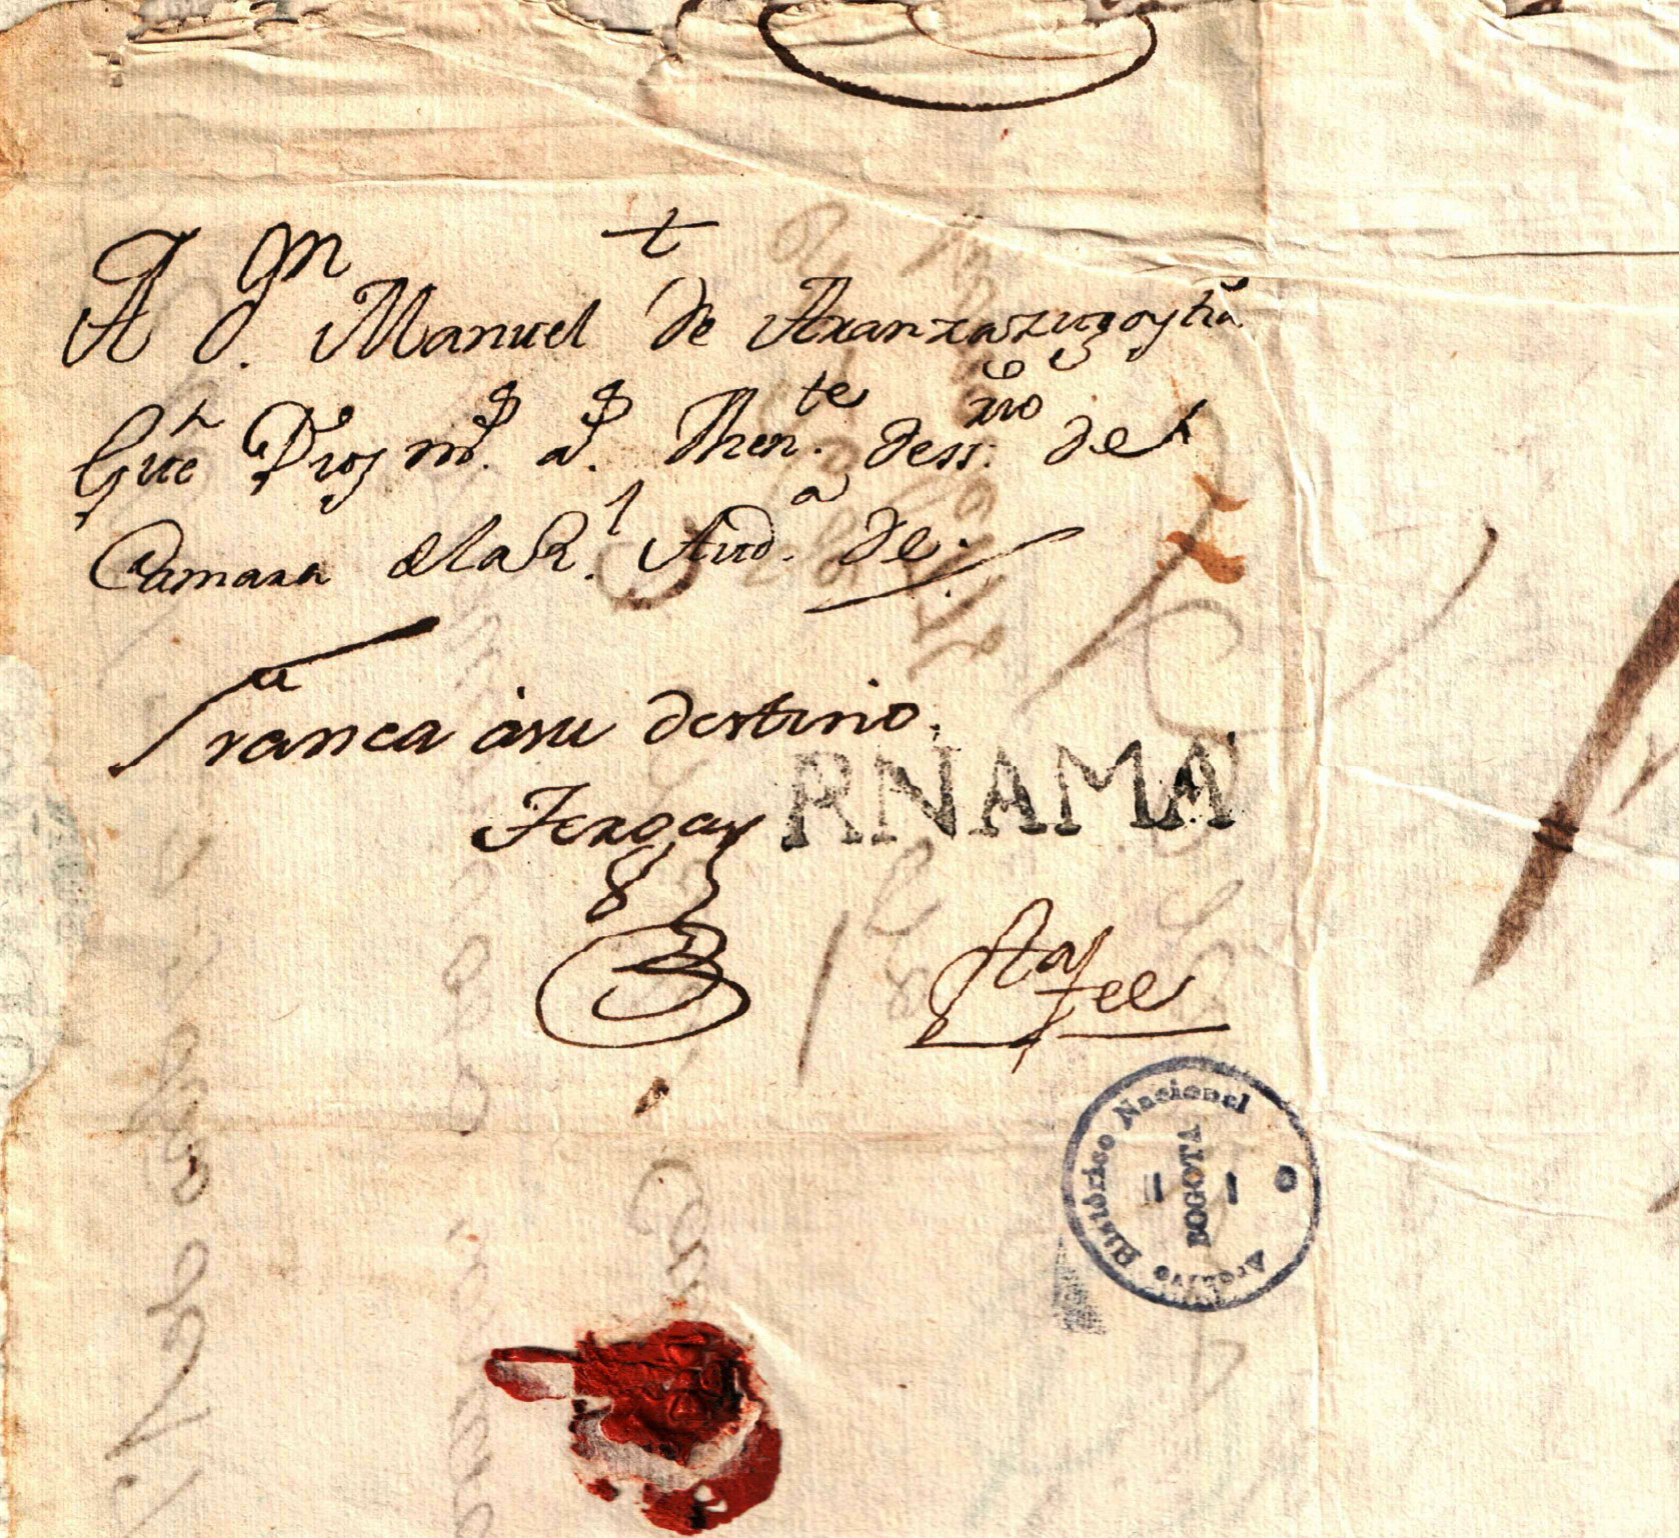 +
A Dn. Manuel de Aranzazugoytia
Gue Dios ms. as. Then.te dess.rio de
Camara de la Rl. Aud.a de
Franca à su destino.
PANAMA
Rafael
Archivo Histórico Nacional
BOGOTA